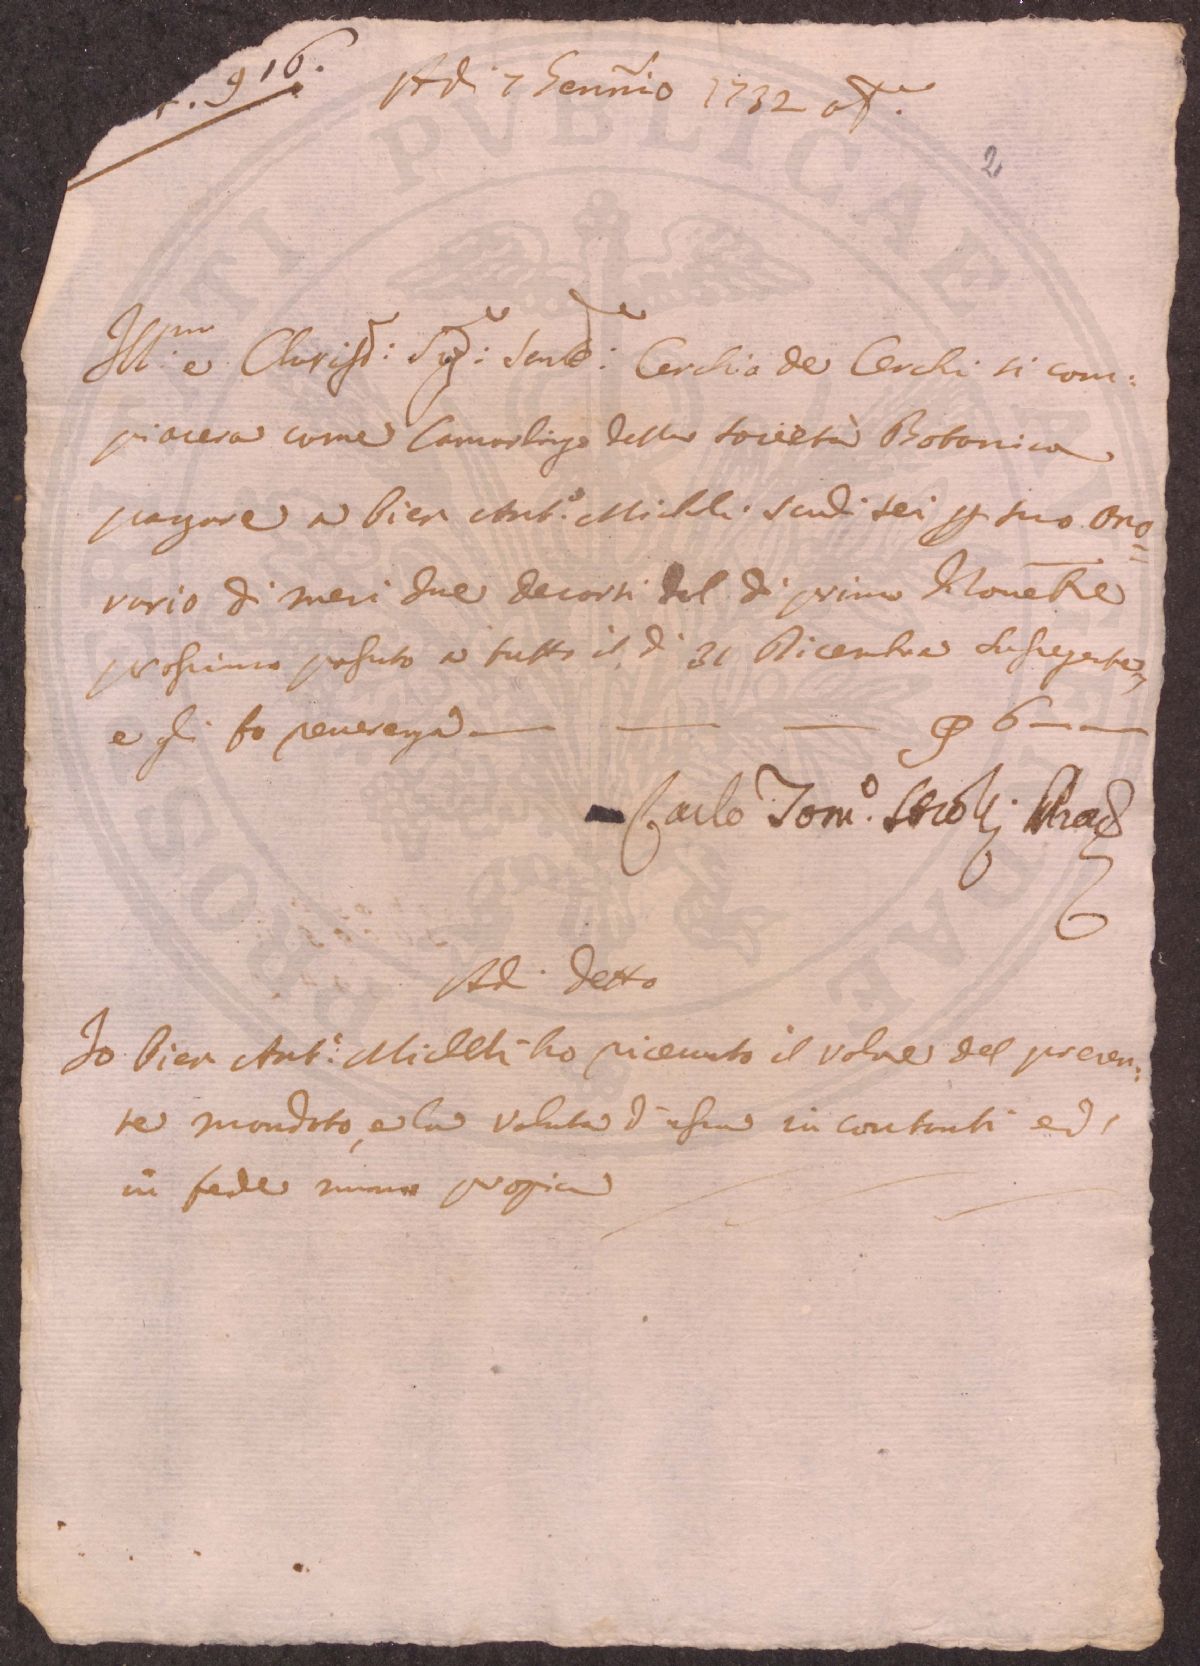 916.
Adi 7 Genn:io 1732
2
Ill:mo e Clariss: Sig:re Sen:re Cerchio de Cerchi si com:
piacera come Camarlingo della Società Botanica
pagare a Pier Ant:o Micheli Scudi sei p suo Ono=
rario di mesi due decorsi dal di primo Novembre
prossimo passato a tutto il di 31 Dicembre Susseguente,
e gli fo reverenza — — — 6 —
Carlo Tom:o Strozzi
Adi detto
Io Pier Ant:o Micheli ho ricevuto il valore del presen:
te mandato, e la valuta d'esso in contanti ed
in fede mano propria
PROSPERITATI PUBLICAE AUGENDAE